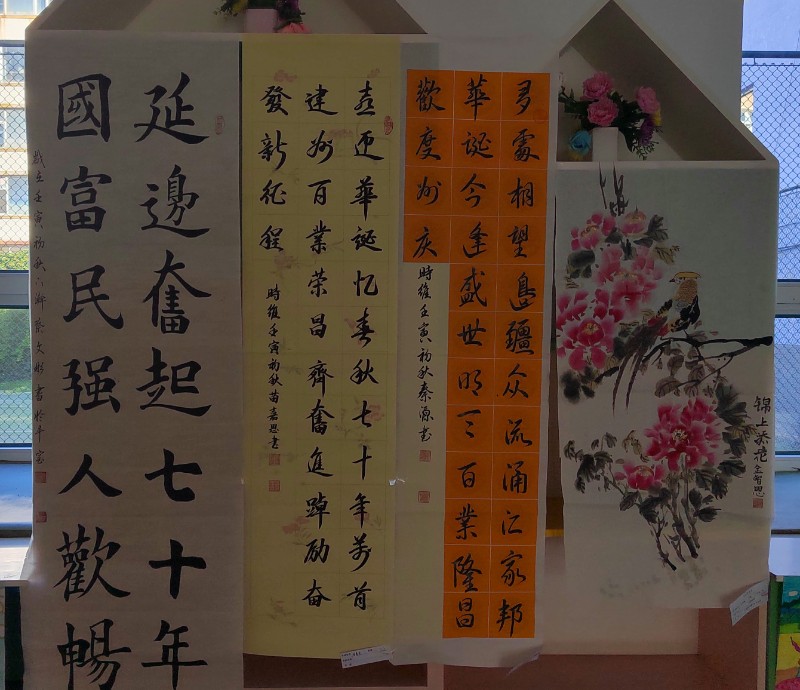 延邊奮起七十年
國富民强人歡暢
歲在壬寅初秋
喜迎華誕忆春秋七十年首
建州百業荣昌齊奮進踔励奋
發新征程
時維壬寅初秋苗嘉思書
多處相望邊疆众流涌汇家邦
華誕今逢盛世明三百業隆昌
歡度州庆
時維壬寅初秋秦源書
锦上添花 金智思